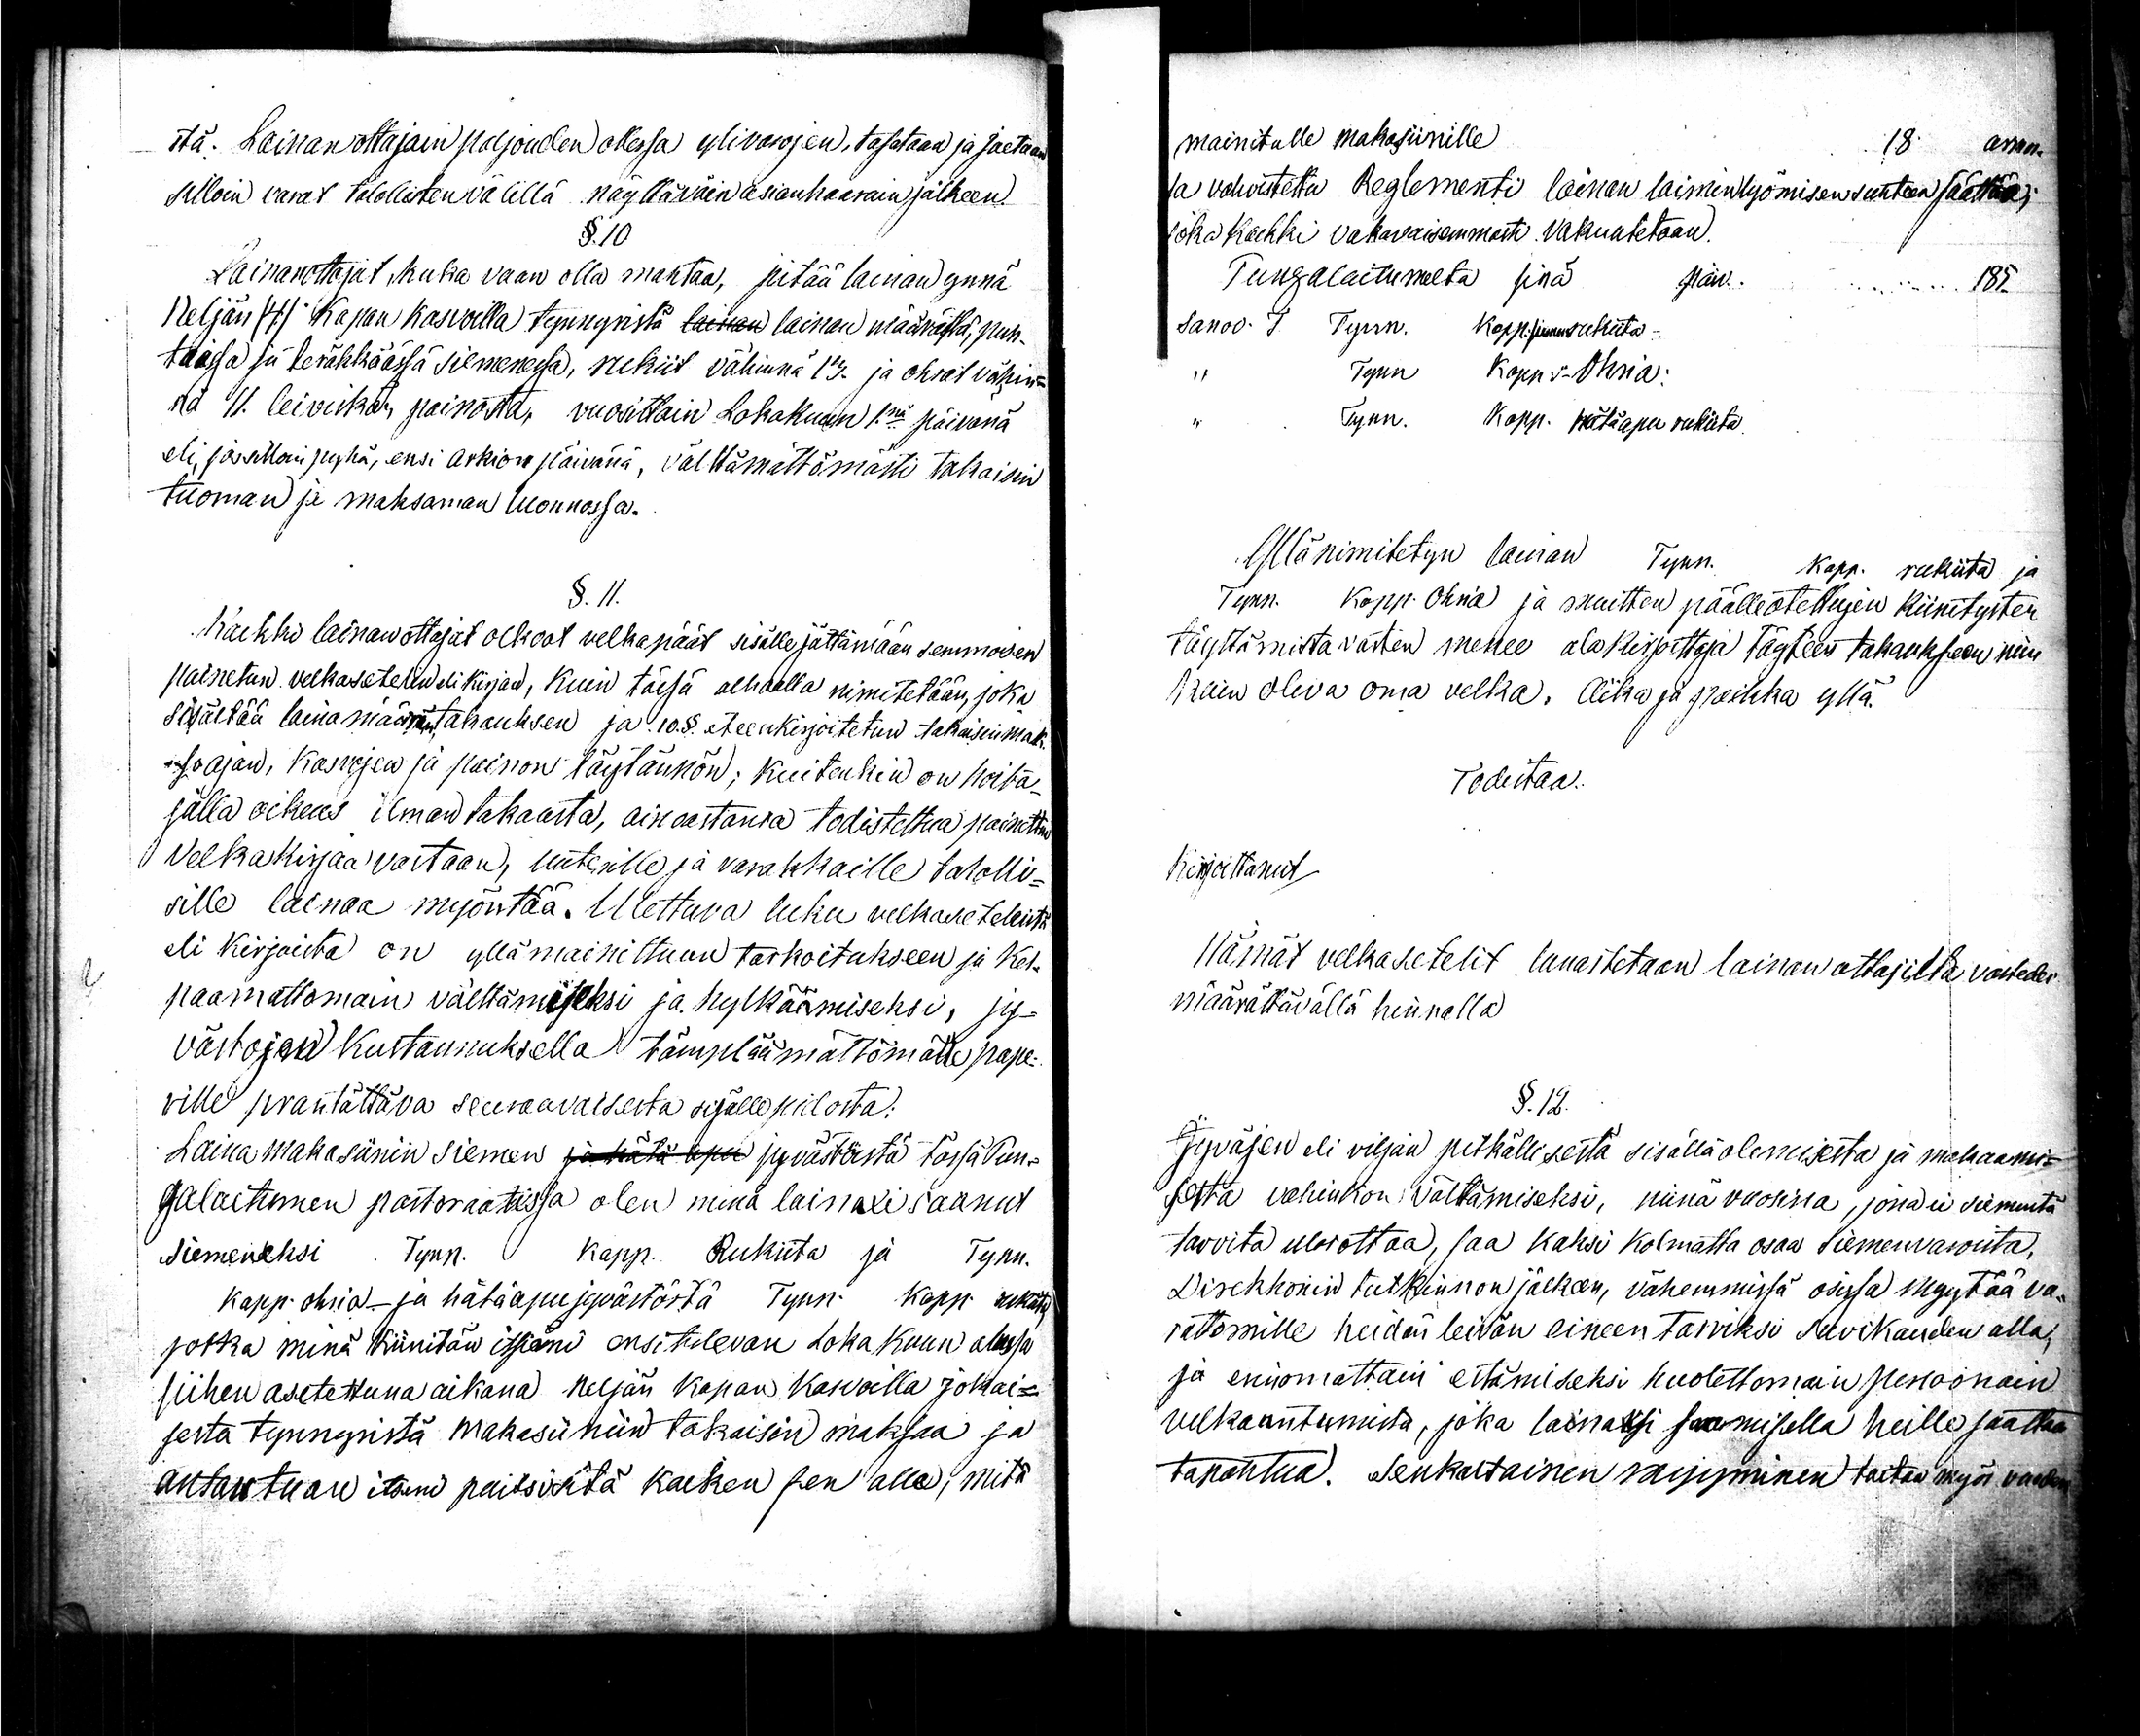 stä. Lainan ottajain paljouden ollessa ylivarojen, tasataan ja jaetaan
silloin varat talollisten välillä näyttäväin asianhaarain jälkeen.
§. 10
Lainanottajat, kuka vaan olla mahtaa, pitää lainan ynnä
Neljän (4) Kapan Kasvoilla tynnyristä lainan lainan määrältä, puh-
taassa ja terähkäässä siemenessä, rukiit vähinnä 13. ja ohrat vähin=
nä 11. leiviskän painosta, vuosittain Lokakuun 1.nä päivänä
eli, jos silloin pyhä, ensi arkion päivänä, välttämättömästi takaisin
tuoman ja maksaman luonnossa.
§. 11.
Kaikki lainan ottajat olkoot velkapäät sisälle jättämään semmoisen
painetun velkasetelin eli kirjan, kuin tässä alhaalla nimitetään, joka
sisältää laina määrän, takauksen ja 10. §. eteenkirjoitetun takaisin mak-
so ajan, Kasvojen ja painon täytännön; Kuitenkin on hoita-
jalla oikeus ilman takausta, ainoastansa todistettua painettua
Velka Kirjaa vastaan, luterille ja varakkaille talolli=
sille lainaa myöntää. Ulettuva luku velkaseteleistä
eli Kirjoista on yllämainittuun tarkoitukseen ja Kel-
paamattomain välttämiseksi ja hylkäämiseksi, jy-
västojen Kustannuksella tämpläämättömälle pape-
rille präntättävä seuraavaisesta sisälle pidosta:
Laina makasiinin Siemen ja hätä apu jyvästöstä tässä Tun-
galaitumen pastoraatissa olen minä lainaxi saanut
Siemeneksi Tynn. Kapp. Rukiita ja Tynn.
Kapp. ohria - ja hätäapujyvästöstä Tynn. Kapp. rukiita,
jotka minä kiinitän itseni ensitulevan Loka Kuun alussa
siihen asetettuna aikana neljän Kapan Kasvoilla jokai=
sesta tynnyristä Makasiiniin takaisin maksaa ja
antaun tuan itseni paitsi sitä kaiken sen alle, mitä
mainitulle makasiinille 18 annn.
ta vahvistettu Reglementi lainan laiminlyömisen suhteen säättää;
joka Kaikki vakavaisemmasti Vakuutetaan.
Tungalaitumelta sinä päiv. 185
Sanoo. S Tynn. Kopp. siemen rukiita -
" Tynn Kopp s- Ohria:
" Tynn. Kopp. hätäapu rukiita
Yllänimitetyn lainan Tynn. Kapp. rukiita ja
Tynn. Kapp. Ohria ja muitten päälleotettujen Kiinitysten
täyttämistä vasten menee alakirjoittaja täyteen takaukseen niin
Kuin oleva oma velka. Aika ja paikka yllä.
Todistaa.
Kirjoittanut
Nämät velkasetelit lunastetaan lainan ottajilta vastedes
määrättävällä hinnalla
§. 12.
Jyväjen eli viljan pitkällisestä sisällä olemisesta ja makaami=
sesta vahinkon välttämiseksi, niinä vuosina, jona ei siementä
tarvita ulosottaa, saa kaksi kolmatta osaa Siemenvaroista,
Direkkionin tutkinnon jälkeen, vähemmissä osissa myytää va-
rattomille heidän leivän aineen tarviksi Suvikauden alla,
ja enimmättäin estämiseksi huolettomain persoonain
velkaantumista, joka lainaksi saamisella heille saattaa
tapahtua. Senkaltainen myyminen taitaa myös vuoden